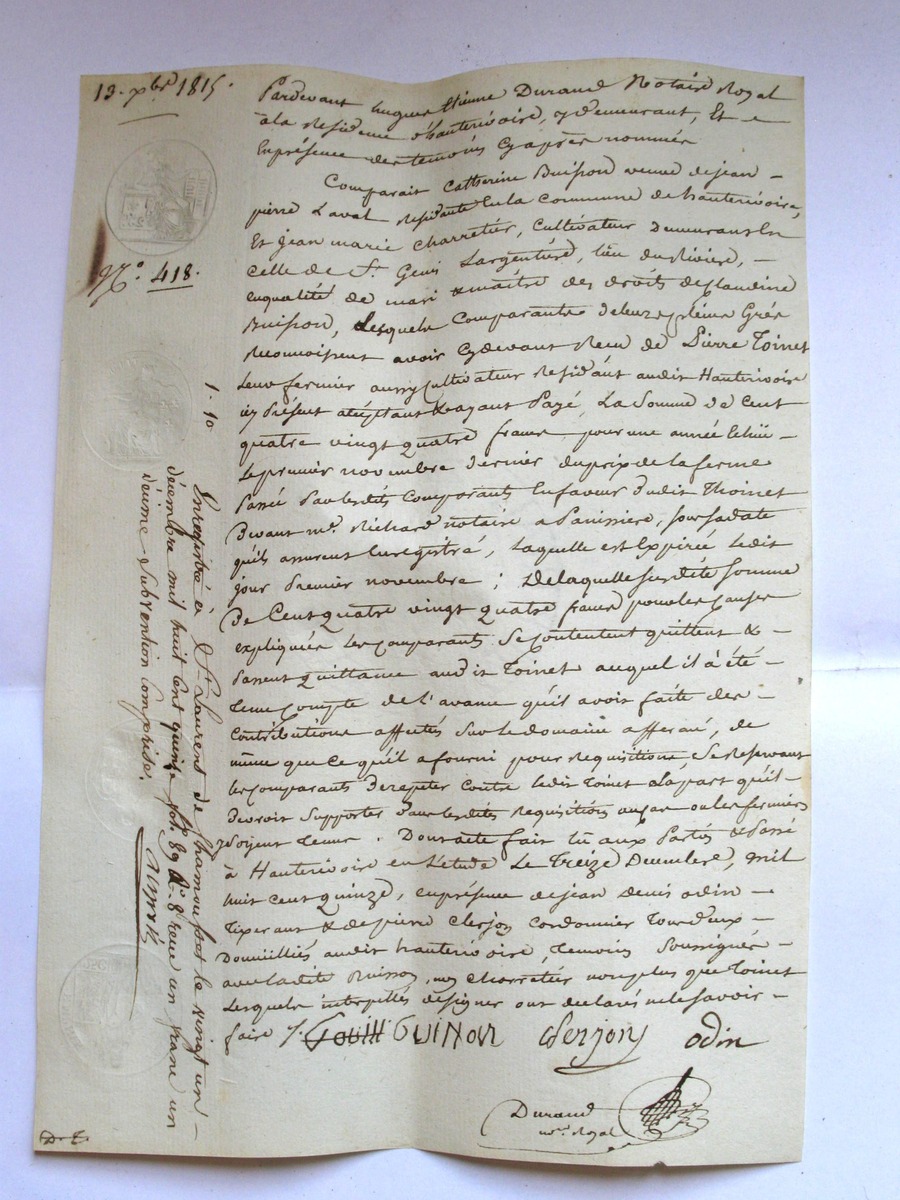 13. xbre 1815.
Pardevant hugue Etienne Durand Notaire Royal
à la Residence d'hauterivoire, y demeurant, Et
En présence des temoins Cy après nommés
Comparait Catherine Buisson veuve de jean
pierre Laval residante En la commune de hauterivoire,
Et jean marie Charretier, Cultivateur Demeurant En
Celle de St. Genis Largentière, lieu du Rivière,
En qualité de mari & maître des droits de Claudine
Buisson, Lesquels Comparants de leurs pleins Grés
Reconnoissent avoir Cydevant Recu de Pierre Toinet
Leur fermier aussy Cultivateur Residant audit Hauterivoire
icy Présent acceptant & ayant Payé, La Somme de Cent
quatre vingt quatre francs pour une année Echüe
Le premier novembre dernier du prix de la ferme
Passée Par lesdits Comparants En faveur dudit Thoinet
Devant me. Richard notaire a Panissiere, sous sa date
qu'ils assurent Enregistré, Laquelle est Expirée Ledit
jour Premier novembre ; De laquelle susdite somme
De Cent quatre vingt quatre francs pour les Causes
expliquées Les Comparants Se Contentent quittent &
Passent quittance audit Toinet auquel il à été
tenu Compte de l'avance qu'il avoit faite des
Contributions affectés Sur Le domaine affermé, de
même que ce qu'il a fourni pour requisitions, Se Reservant
les Comparants de repeter Contre ledit Toinet La part qu'il
devroit Supporter dans lesdites Requisitions au cas ou les fermiers
y Soyent tenus. Dont acte fait lu aux Parties & Passé
à Hauterivoire en L'étude Le Treize Decembre, mil
huit Cent quinze, en présence de jean denis odin
Tixerant & de pierre Clerjon Cordonnier Tous deux
Domicilliés audit hauterivoire, Temoins Soussignés
avec ladite Buisson, non Charretier non plus que Toinet
Lesquels interpellés de signer ont declarés ne le Savoir
faire
GUINON Clerjon odin
Durand
nre. Royal
No. 418.
1. 10
Enregistré à St. Laurent de Chamousset le vingt un
décembre mil huit Cent quinze fol. 89 Co. 8 reçu un franc un
décime Subvention Comprise.
D. E.